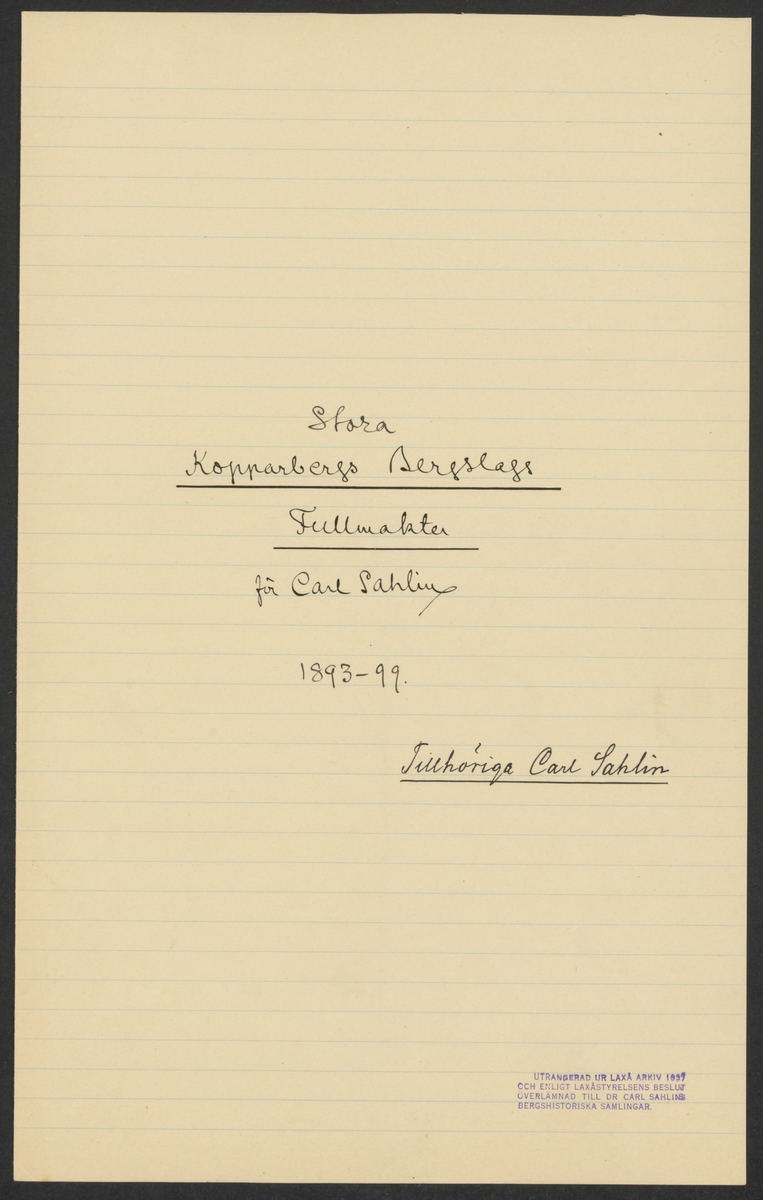 Stora
Kopparbergs Bergslags
Fullmakter
för Carl Sahlin
1893-99.
Tillhöriga Carl Sahlin
UTRANGERAD UR LAXÅ ARKIV 1937
OCH ENLIGT LAXÅSTYRELSENS BESLUT
ÖVERLÄMNAD TILL DR CARL SAHLINS
BERGSHISTORISKA SAMLINGAR.